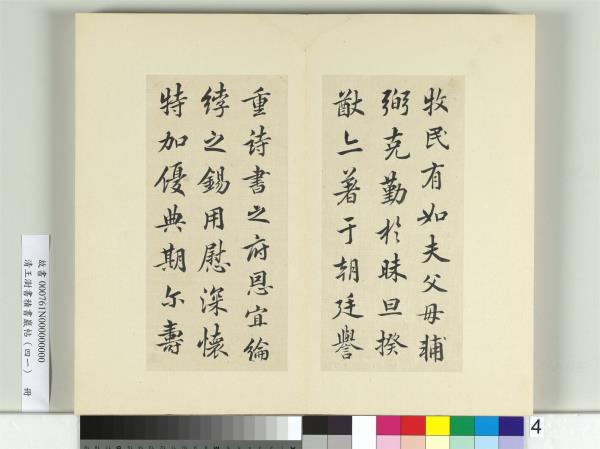 牧民有如夫父毋輔
弼克勤於昧旦揆
猷亡著于朝廷譽
重詩書之府恩宜綸
綍之錫用慰深懷
特加優典期尓壽
故書 000761N000000000
清王澍書積書巖帖(四一) 冊
4